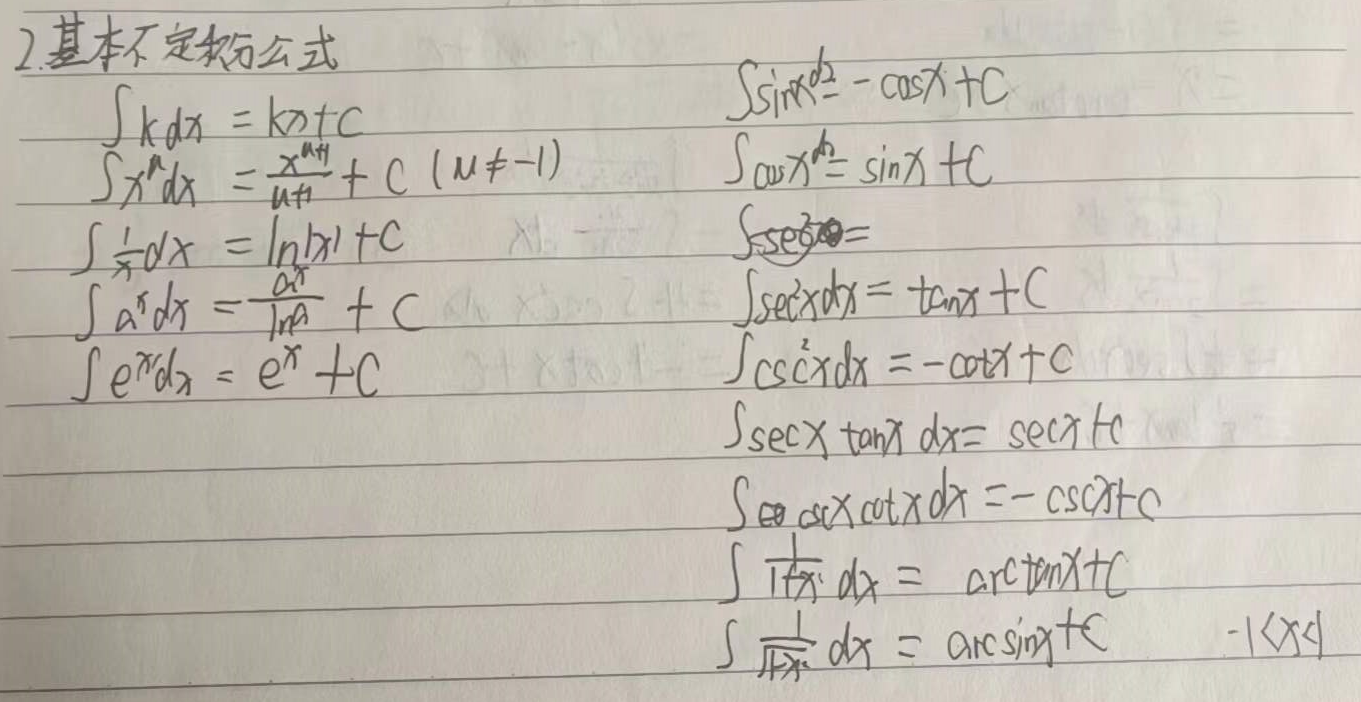 2.基本不定积分公式
∫kdx = kx+C
∫x^μdx = x^(μ+1)/(μ+1) + C (μ≠-1)
∫1/x dx = ln|x|+C
∫a^xdx = a^x/lna + C
∫e^xdx = e^x+C
∫sinxdx = -cosx+C
∫cosxdx = sinx+C
∫sec²xdx = tanx+C
∫csc²xdx = -cotx+C
∫secx tanx dx = secx+C
∫cscxcotxdx = -cscx+C
∫1/(1+x²) dx = arctanx+C
∫1/√(1-x²) dx = arcsinx+C -1<x<1